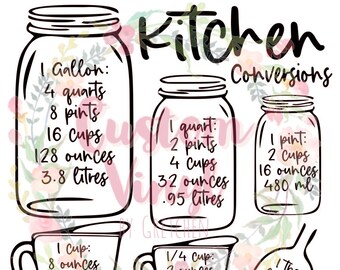 Kitchen
Conversions
1 Gallon:
4 quarts
8 pints
16 cups
128 ounces
3.8 litres
1 quart:
2 pints
4 cups
32 ounces
.95 litres
1 pint:
2 cups
16 ounces
480 ml
Custom
Vinyl
BY GRETCHEN
1 cup:
8 ounces
1/4 cup: